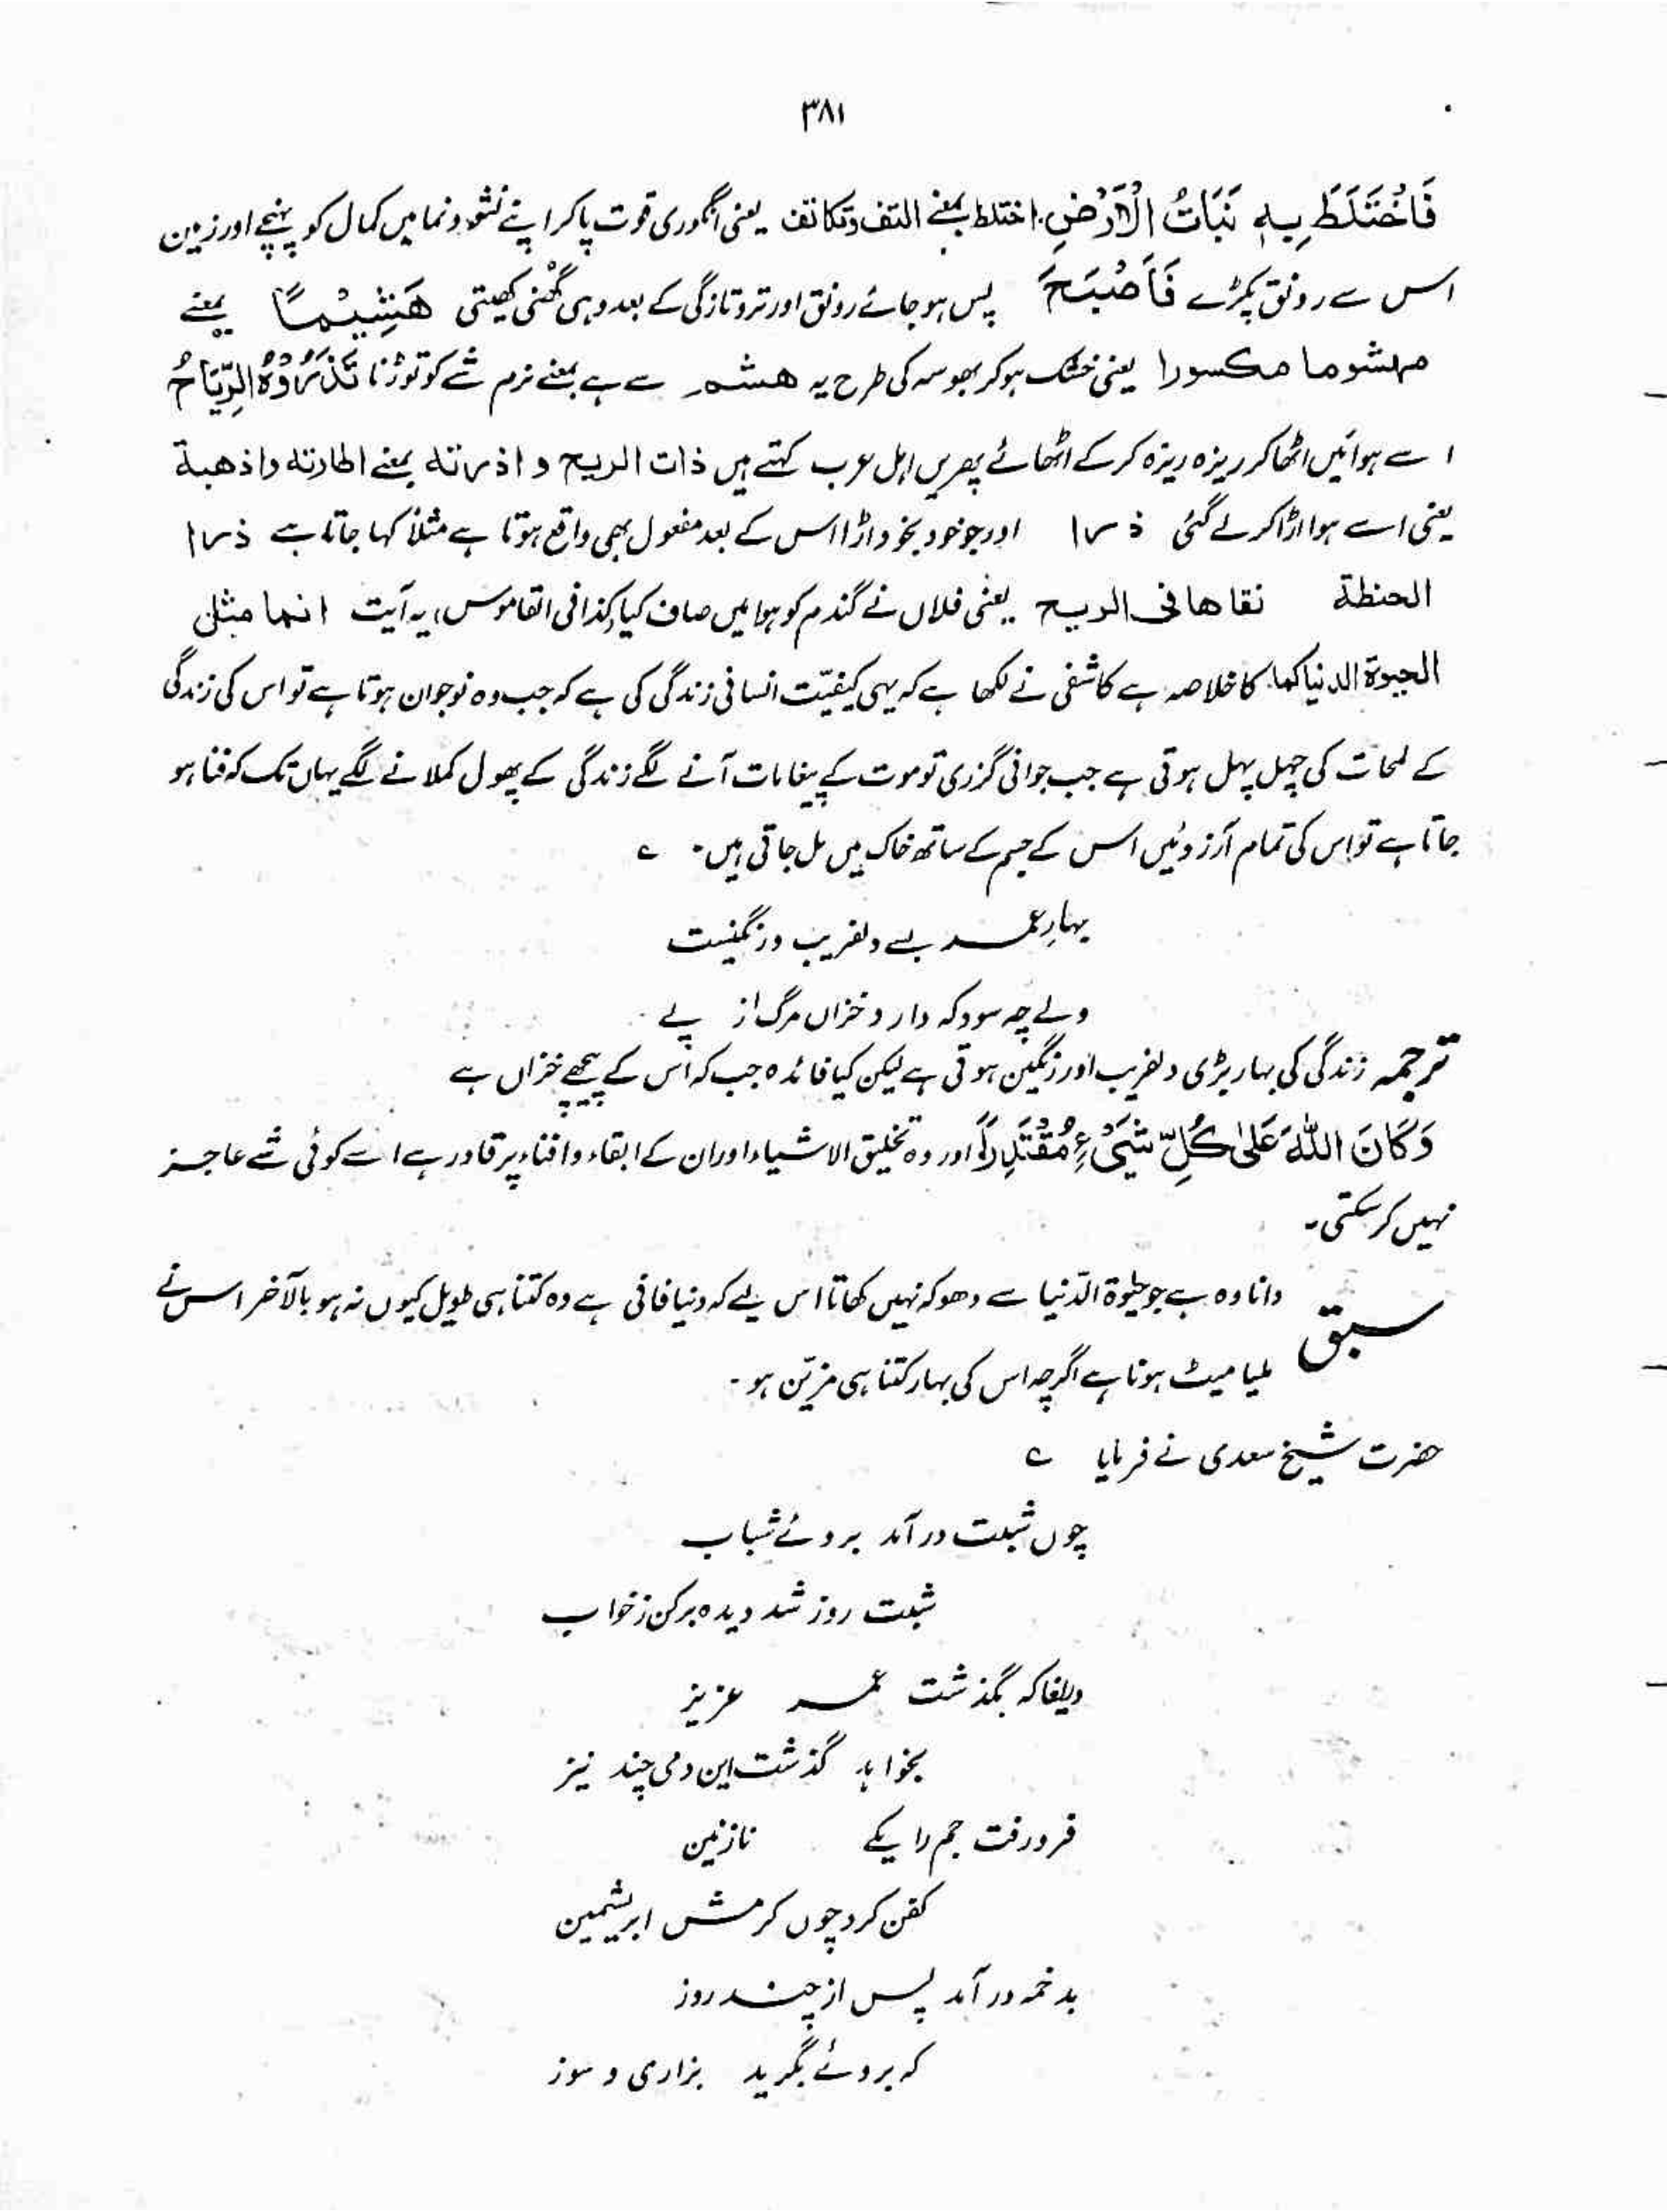 ۳۸۱
فَاخْتَلَطَ بِہٖ نَبَاتُ الْاَرْضِ. اختلط بمعنے التف وتکاثف یعنی انگوری قوت پاکر اپنے نشوونما میں کمال کو پہنچے اور زمین
اس سے رونق پکڑے فَاَصْبَحَ پس ہو جائے رونق اور تروتازگی کے بعد وہی گھنی کھیتی ھَشِیْمًا بمعنے
مہشوما مکسورا یعنی خشک ہوکر بھوسہ کی طرح یہ ھشم سے ہے بمعنے نرم شے کو توڑنا تَذْرُوْہُ الرِّیَاحُ
اسے ہوائیں اٹھا کر ریزہ ریزہ کرکے اٹھائے پھریں اہل عرب کہتے ہیں ذات الریح و اذرتہ بمعنے اطارتہ واذھبۃ
یعنی اسے ہوا اڑا کر لے گئی ذرا اور جو خود بخود اڑا اس کے بعد مفعول بھی واقع ہوتا ہے مثلاً کہا جاتا ہے ذرا
الحنطۃ نقاھا فی الریح یعنی فلاں نے گندم کو ہوا میں صاف کیا (کذا فی القاموس) یہ آیت انما مثل
الحیوۃ الدنیا کما کا خلاصہ ہے کاشفی نے لکھا ہے کہ یہی کیفیّت انسانی زندگی کی ہے کہ جب وہ نوجوان ہوتا ہے تو اس کی زندگی
کے لمحات کی چہل پہل ہوتی ہے جب جوانی گزری تو موت کے پیغامات آنے لگے زندگی کے پھول کملانے لگے یہاں تک کہ فنا ہو
جاتا ہے تو اس کی تمام آرزوئیں اس کے جسم کے ساتھ خاک میں مل جاتی ہیں۔ ؎
بہارِ عمر بسے دلفریب و رنگینست
ولے چہ سود کہ دارد خزاں مرگ از پے
ترجمہ زندگی کی بہار بڑی دلفریب اور رنگین ہوتی ہے لیکن کیا فائدہ جب کہ اس کے پیچھے خزاں ہے
وَکَانَ اللّٰہُ عَلٰی کُلِّ شَیْءٍ مُّقْتَدِرًا اور وہ تخلیق الاشیاء اور ان کے ابقاء و افناء پر قادر ہے اسے کوئی شے عاجز
نہیں کر سکتی۔
سبق دانا وہ ہے جو حیٰوۃ الدّنیا سے دھوکہ نہیں کھاتا اس لیے کہ دنیا فانی ہے وہ کتنا ہی طویل کیوں نہ ہو بالآخر اس نے
ملیا میٹ ہونا ہے اگرچہ اس کی بہار کتنا ہی مزیّن ہو۔
حضرت شیخ سعدی نے فرمایا ؎
چوں شبیت در آمد بروئے شباب
شبت روز شد دیدہ برکن زخواب
دریغا کہ بگذشت عمر عزیز
بخواہد گذشت این دمی چند نیز
فرورفت جم را یکے نازنین
کفن کرد چوں کرمش ابریشمین
بدخمہ در آمد پس از چند روز
کہ بروئے بگرید بزاری و سوز